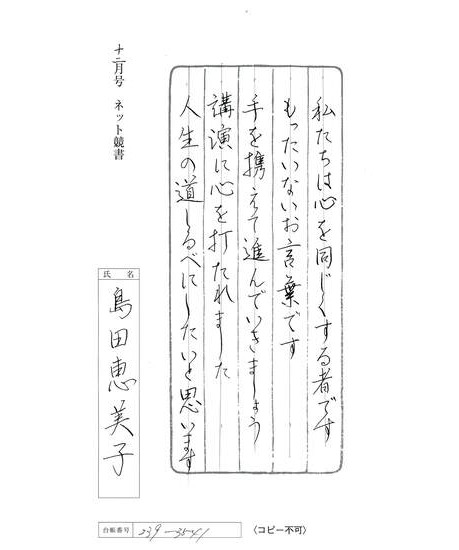 十二月号 ネット競書
私たちは心を同じくする者です
もったいないお言葉です
手を携えて進んでいきましょう
講演に心を打たれました
人生の道しるべにしたいと思います
氏名
島田恵美子
台帳番号 239-3541
〈コピー不可〉